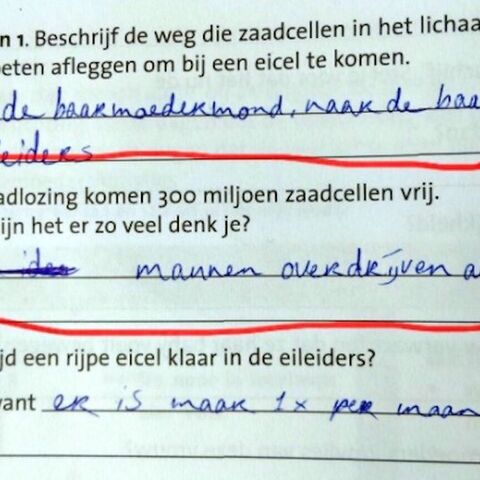 n 1. Beschrijf de weg die zaadcellen in het lichaa
eten afleggen om bij een eicel te komen.
de baarmoedermond, naar de baa
leiders
adlozing komen 300 miljoen zaadcellen vrij.
ijn het er zo veel denk je?
mannen overdrijven a
jd een rijpe eicel klaar in de eileiders?
vant er is maar 1x per maan